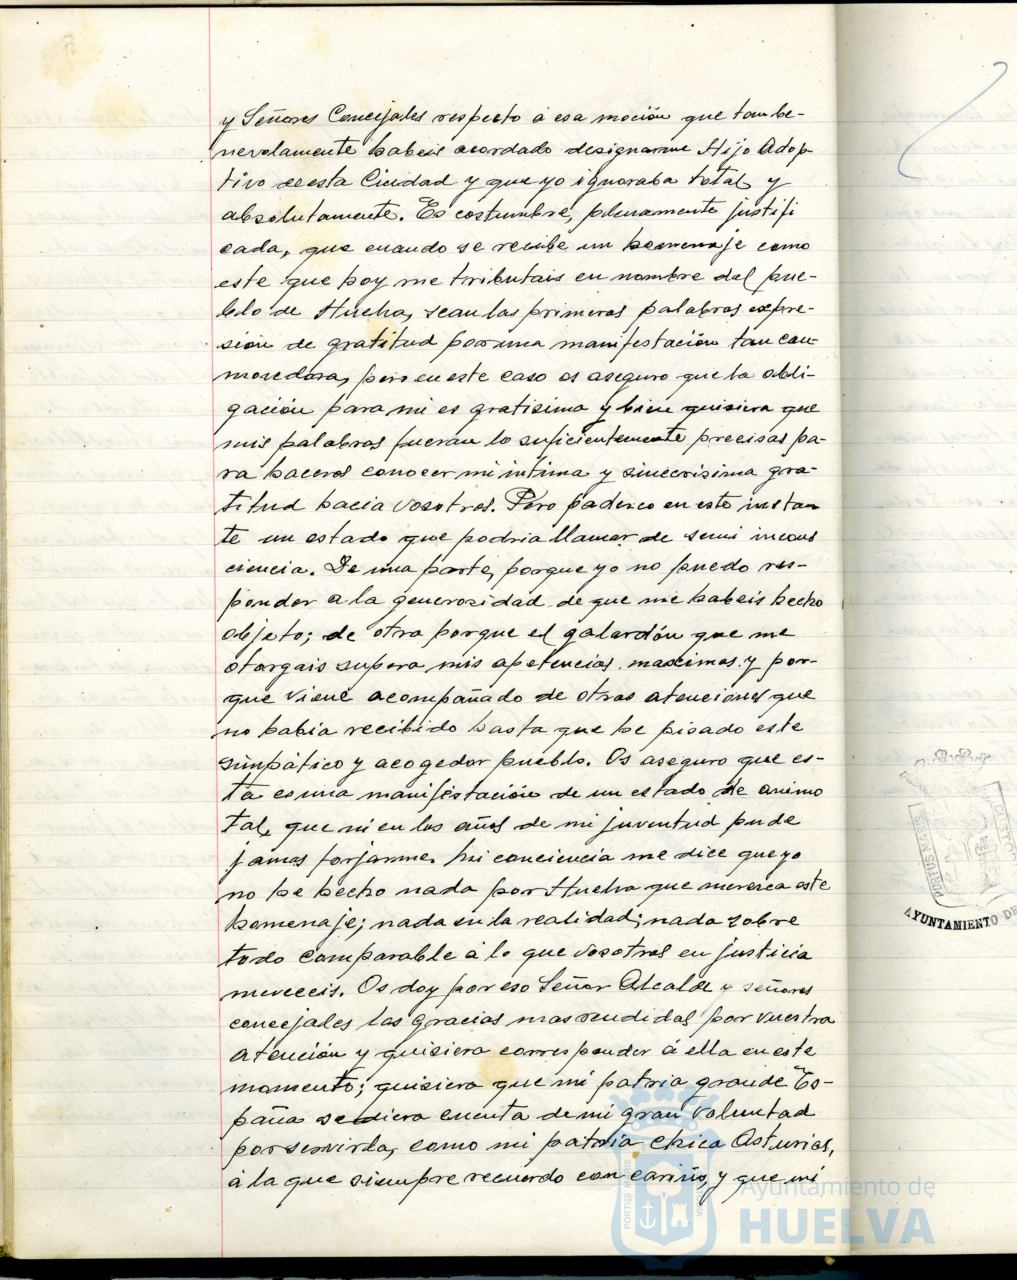 y Señores Concejales respecto á esa moción que tan be-
nevolamente habeis acordado designarme Hijo Adop-
tivo de esta Ciudad y que yo ignoraba total y
absolutamente. Es costumbre, plenamente justifi
cada, que cuando se recibe un homenaje como
este que hoy me tributais en nombre del pue-
blo de Huelva, sean las primeras palabras expre-
sión de gratitud por una manifestación tan con-
movedora, pero en este caso os aseguro que la obli-
gación para mi es gratisima y bien quisiera que
mis palabras fueran lo suficientemente precisas pa-
ra haceros conocer mi intima y sincerisima gra-
titud hacia vosotros. Pero padezco en este instan
te un estado que podria llamar de semi incons
ciencia. De una parte, porque yo no puedo res-
ponder a la generosidad de que me habeis hecho
objeto; de otra porque el galardón que me
otorgais supera mis apetencias maximas y por-
que viene acompañado de otras atenciones que
no habia recibido hasta que he pisado este
simpático y acogedor pueblo. Os aseguro que es-
ta es una manifestación de un estado de animo
tal, que ni en los años de mi juventud pude
jamas forjarme. Mi conciencia me dice que yo
no he hecho nada por Huelva que merezca este
homenaje; nada en la realidad; nada sobre
todo comparable á lo que vosotros en justicia
mereceis. Os doy por eso Señor Alcalde y señores
concejales las gracias mas rendidas por vuestra
atención y quisiera corresponder á ella en este
momento; quisiera que mi patria grande Es-
paña se diera cuenta de mi gran voluntad
por servirla, como mi patria chica Asturias,
á la que siempre recuerdo con cariño, y que mi
PORTUS MARIS
AYUNTAMIENTO DE
Ayuntamiento de
HUELVA